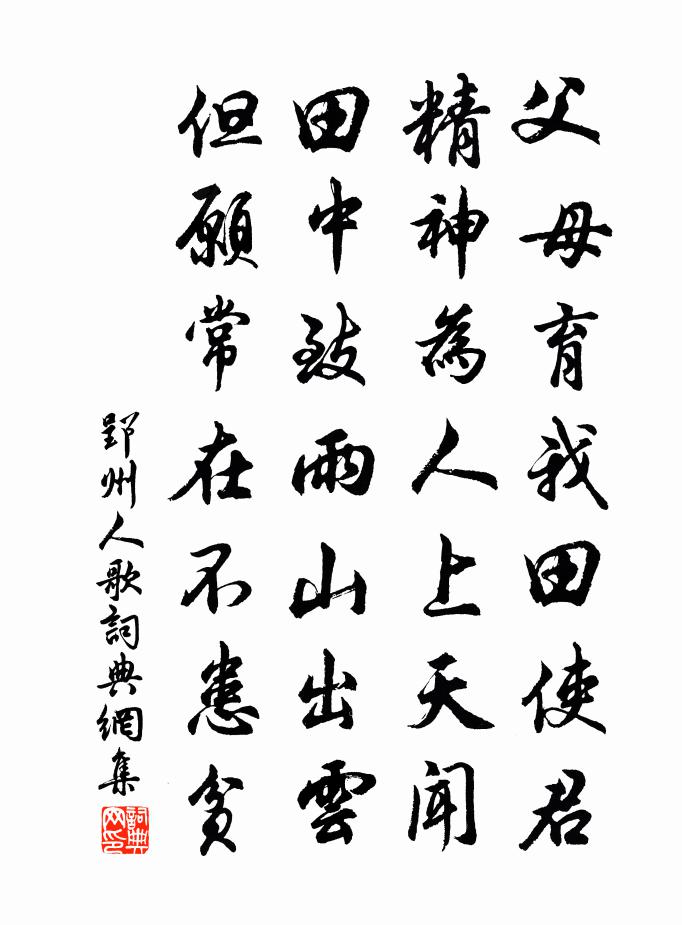 父母育我田使君
精神為人上天聞
田中致雨山出雲
但願常在不患貧
郢州人歌詞典網集
詞典网印